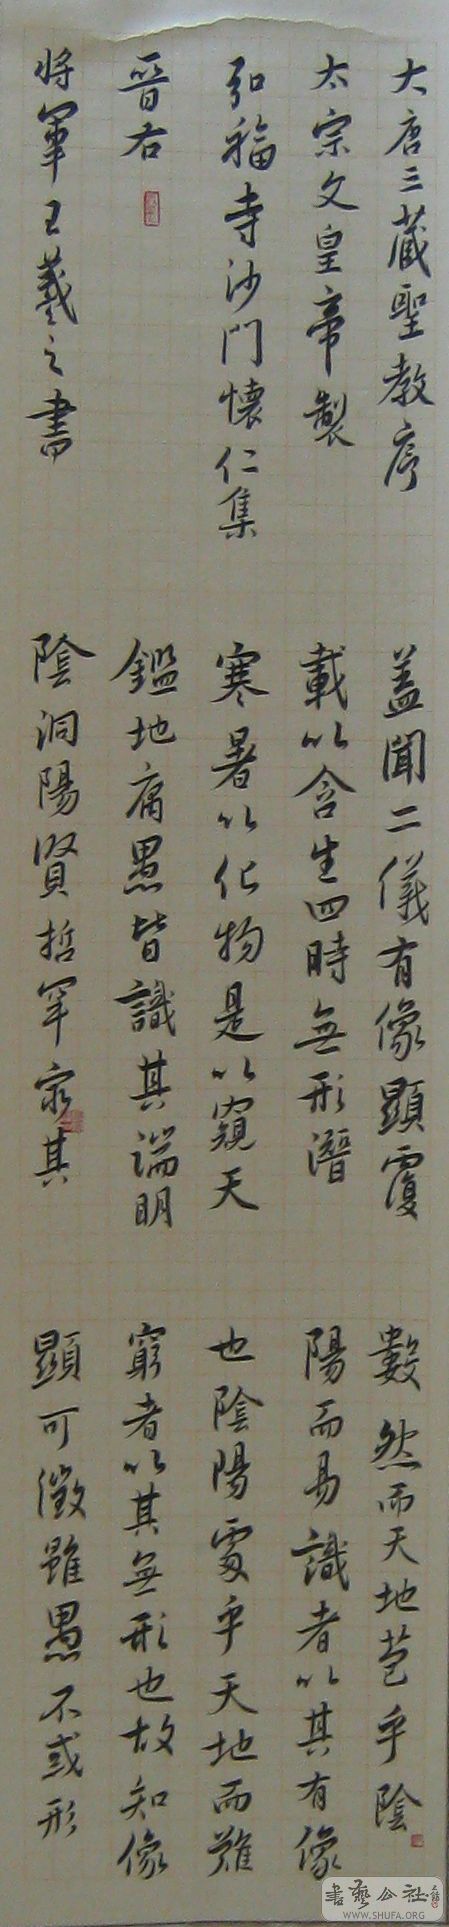 大唐三藏聖教序
太宗文皇帝製
弘福寺沙門懷仁集
晉右
將軍王羲之書
蓋聞二儀有像顯覆
載以含生四時無形潛
寒暑以化物是以窺天
鑑地庸愚皆識其端明
陰洞陽賢哲罕窮其
數然而天地苞乎陰
陽而易識者以其有像
也陰陽處乎天地而難
窮者以其無形也故知像
顯可徵雖愚不惑形
書藝公社
WWW.SHUFA.ORG